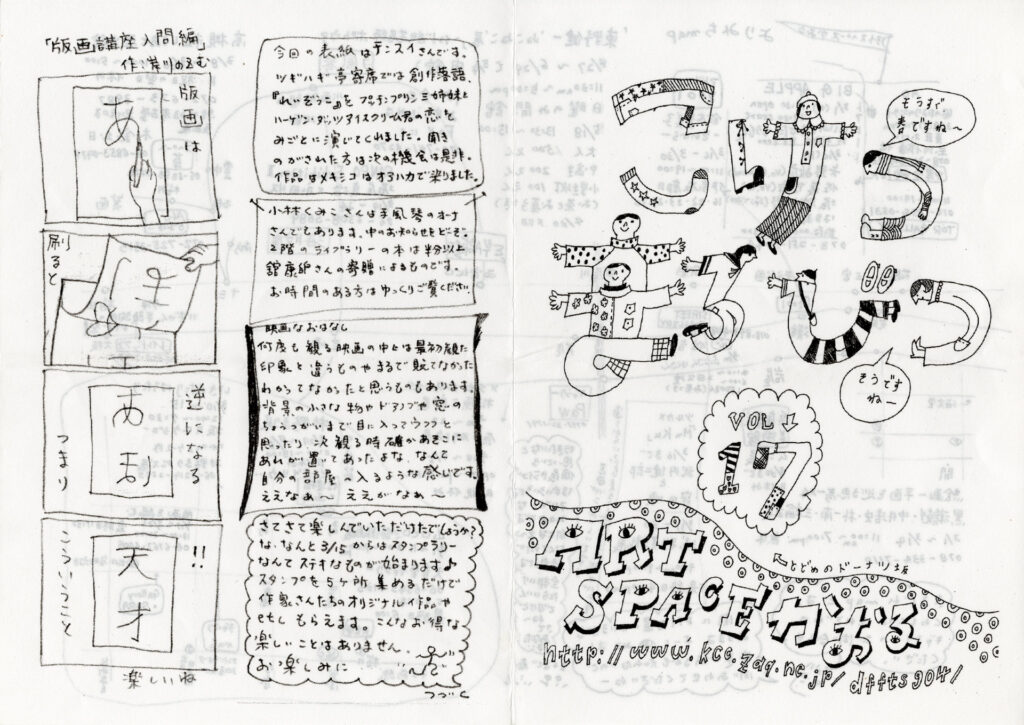 「版画講座入門編」
版画は
刷ると
逆になる
つまり
こういうこと
天才
!!
楽しいね
今回の表紙はテンスイさんです。
ツギハギ亭寄席では創作落語、
みごとに演じてくれました。聞き
のがされた方は次の機会は是非。
小林くみこさんは手風琴のオーナ
さんでもあります。中のお知らせをどーぞ。
2階のライブラリーの本は半分以上
さんの寄贈によるものです。
お時間のある方はゆっくりご覧ください
映画なおはなし
何度も観る映画の中には最初観た
印象と違うものやまるで観てなかた
わかってなかったと思うものもあります。
背景の小さな物やドアノブや窓の
ちょうつがいまで目に入ってウフフと
思ったり、次観る時確かあそこに
あれが置いてあったよな、なんて
自分の部屋へ入るような感じです。
ええなぁ〜 ええがなぁ〜
さてさて楽しんでいただけたでしょうか?
な、なんと3/15からはスタンプラリー
なんてステキなものが始まります♪
スタンプを5ヶ所集めるだけで
作家さんたちのオリジナル作品や
etc もらえます。こんなお得な
楽しいことはありません。
お楽しみに
つづく
もうすぐ
春ですね〜
そうです
ねー
VOL↓
17
とどめのドーナツ坂
ART
SPACEかおる
http://www.kcc.zaq.ne.jp/dffts904/